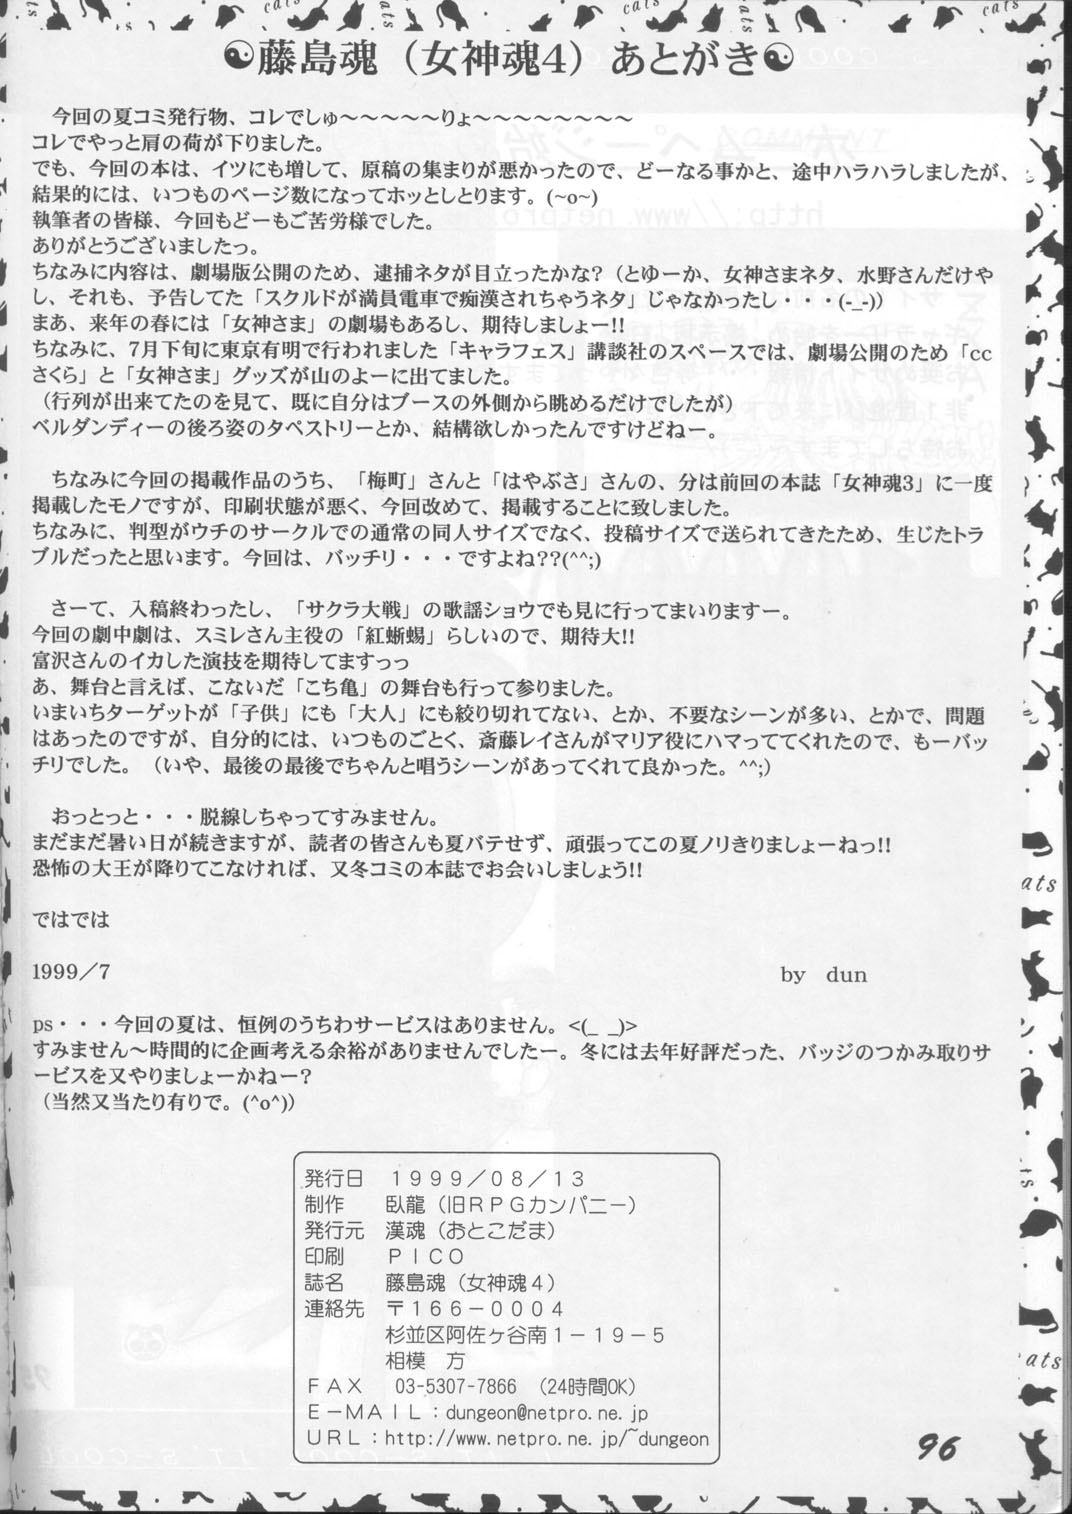 ☯藤島魂（女神魂4）あとがき☯
今回の夏コミ発行物、コレでしゅ〜〜〜〜〜りょ〜〜〜〜〜〜〜〜
コレでやっと肩の荷が下りました。
でも、今回の本は、イツにも増して、原稿の集まりが悪かったので、どーなる事かと、途中ハラハラしましたが、
結果的には、いつものページ数になってホッとしとります。(~o~)
執筆者の皆様、今回もどーもご苦労様でした。
ありがとうございましたっ。
ちなみに内容は、劇場版公開のため、逮捕ネタが目立ったかな?（とゆーか、女神さまネタ、水野さんだけや
し、それも、予告してた「スクルドが満員電車で痴漢されちゃうネタ」じゃなかったし・・・(-_-)）
まあ、来年の春には「女神さま」の劇場もあるし、期待しましょー!!
ちなみに、7月下旬に東京有明で行われました「キャラフェス」講談社のスペースでは、劇場公開のため「cc
さくら」と「女神さま」グッズが山のよーに出てました。
（行列が出来てたのを見て、既に自分はブースの外側から眺めるだけでしたが）
ベルダンディーの後ろ姿のタペストリーとか、結構欲しかったんですけどねー。
ちなみに今回の掲載作品のうち、「梅町」さんと「はやぶさ」さんの、分は前回の本誌「女神魂3」に一度
掲載したモノですが、印刷状態が悪く、今回改めて、掲載することに致しました。
ちなみに、判型がウチのサークルでの通常の同人サイズでなく、投稿サイズで送られてきたため、生じたトラ
ブルだったと思います。今回は、バッチリ・・・ですよね??(^^;)
さーて、入稿終わったし、「サクラ大戦」の歌謡ショウでも見に行ってまいりますー。
今回の劇中劇は、スミレさん主役の「紅蜥蜴」らしいので、期待大!!
富沢さんのイカした演技を期待してますっっ
あ、舞台と言えば、こないだ「こち亀」の舞台も行って参りました。
いまいちターゲットが「子供」にも「大人」にも絞り切れてない、とか、不要なシーンが多い、とかで、問題
はあったのですが、自分的には、いつものごとく、斎藤レイさんがマリア役にハマっててくれたので、もーバッ
チリでした。（いや、最後の最後でちゃんと唱うシーンがあってくれて良かった。^^;）
おっとっと・・・脱線しちゃってすみません。
まだまだ暑い日が続きますが、読者の皆さんも夏バテせず、頑張ってこの夏ノリきりましょーねっ!!
恐怖の大王が降りてこなければ、又冬コミの本誌でお会いしましょう!!
ではでは
1999／7 by dun
ps・・・今回の夏は、恒例のうちわサービスはありません。<(_ _)>
すみません〜時間的に企画考える余裕がありませんでしたー。冬には去年好評だった、バッジのつかみ取りサ
ービスを又やりましょーかねー?
（当然又当たり有りで。(^o^)）
発行日 １９９９／０８／１３
制作 臥龍（旧ＲＰＧカンパニー）
発行元 漢魂（おとこだま）
印刷 ＰＩＣＯ
誌名 藤島魂（女神魂４）
連絡先 〒１６６－０００４
杉並区阿佐ヶ谷南１－１９－５
相模 方
ＦＡＸ 03-5307-7866 （24時間OK）
Ｅ－ＭＡＩＬ：dungeon@netpro.ne.jp
ＵＲＬ：http://www.netpro.ne.jp/~dungeon
96